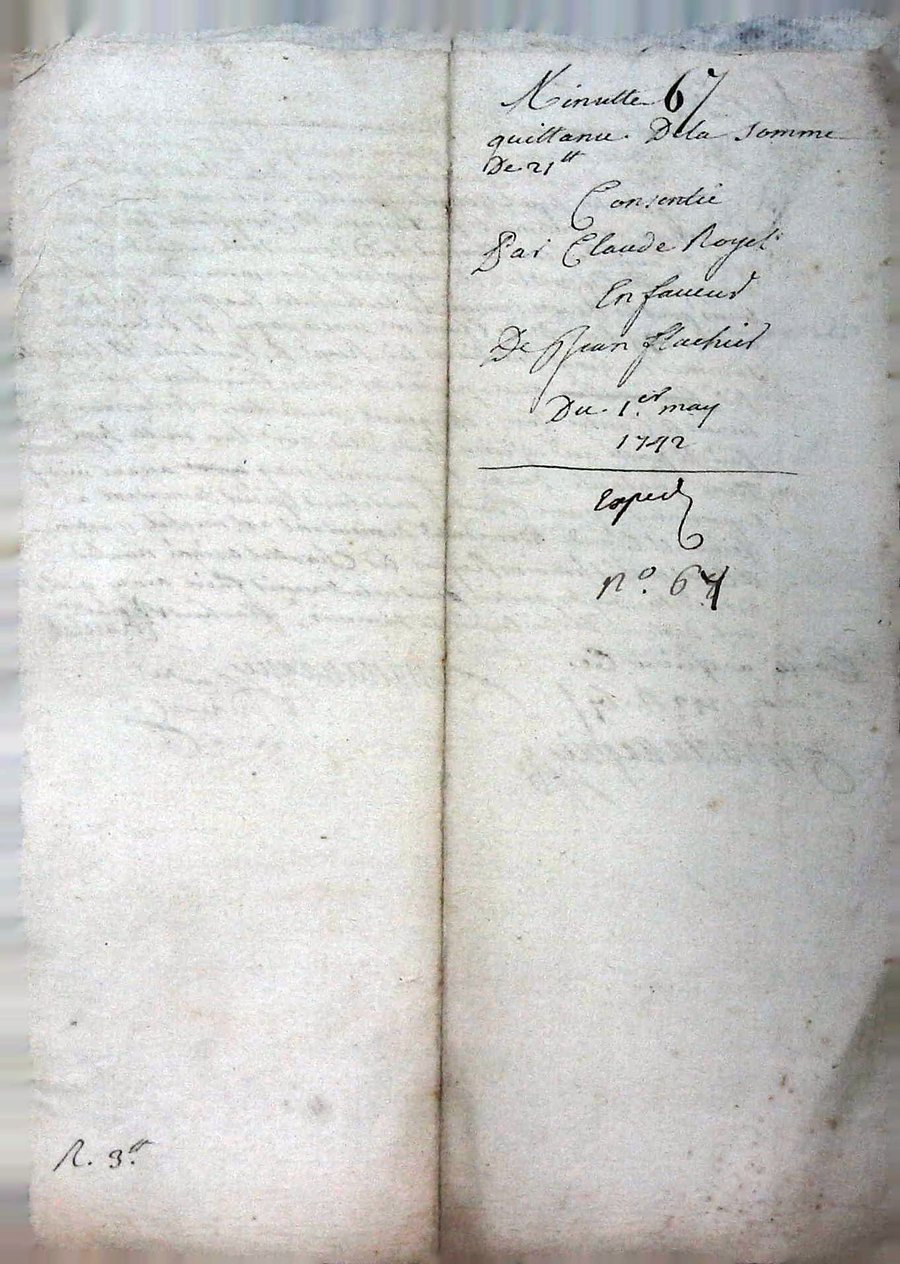 Minutte 67
quittance Dela somme
De 21tt
Consentie
Par Claude Royet
En faveur
De Jean flachier
Du 1.er may
1742
Exped
N.o 67
R. 3.tt